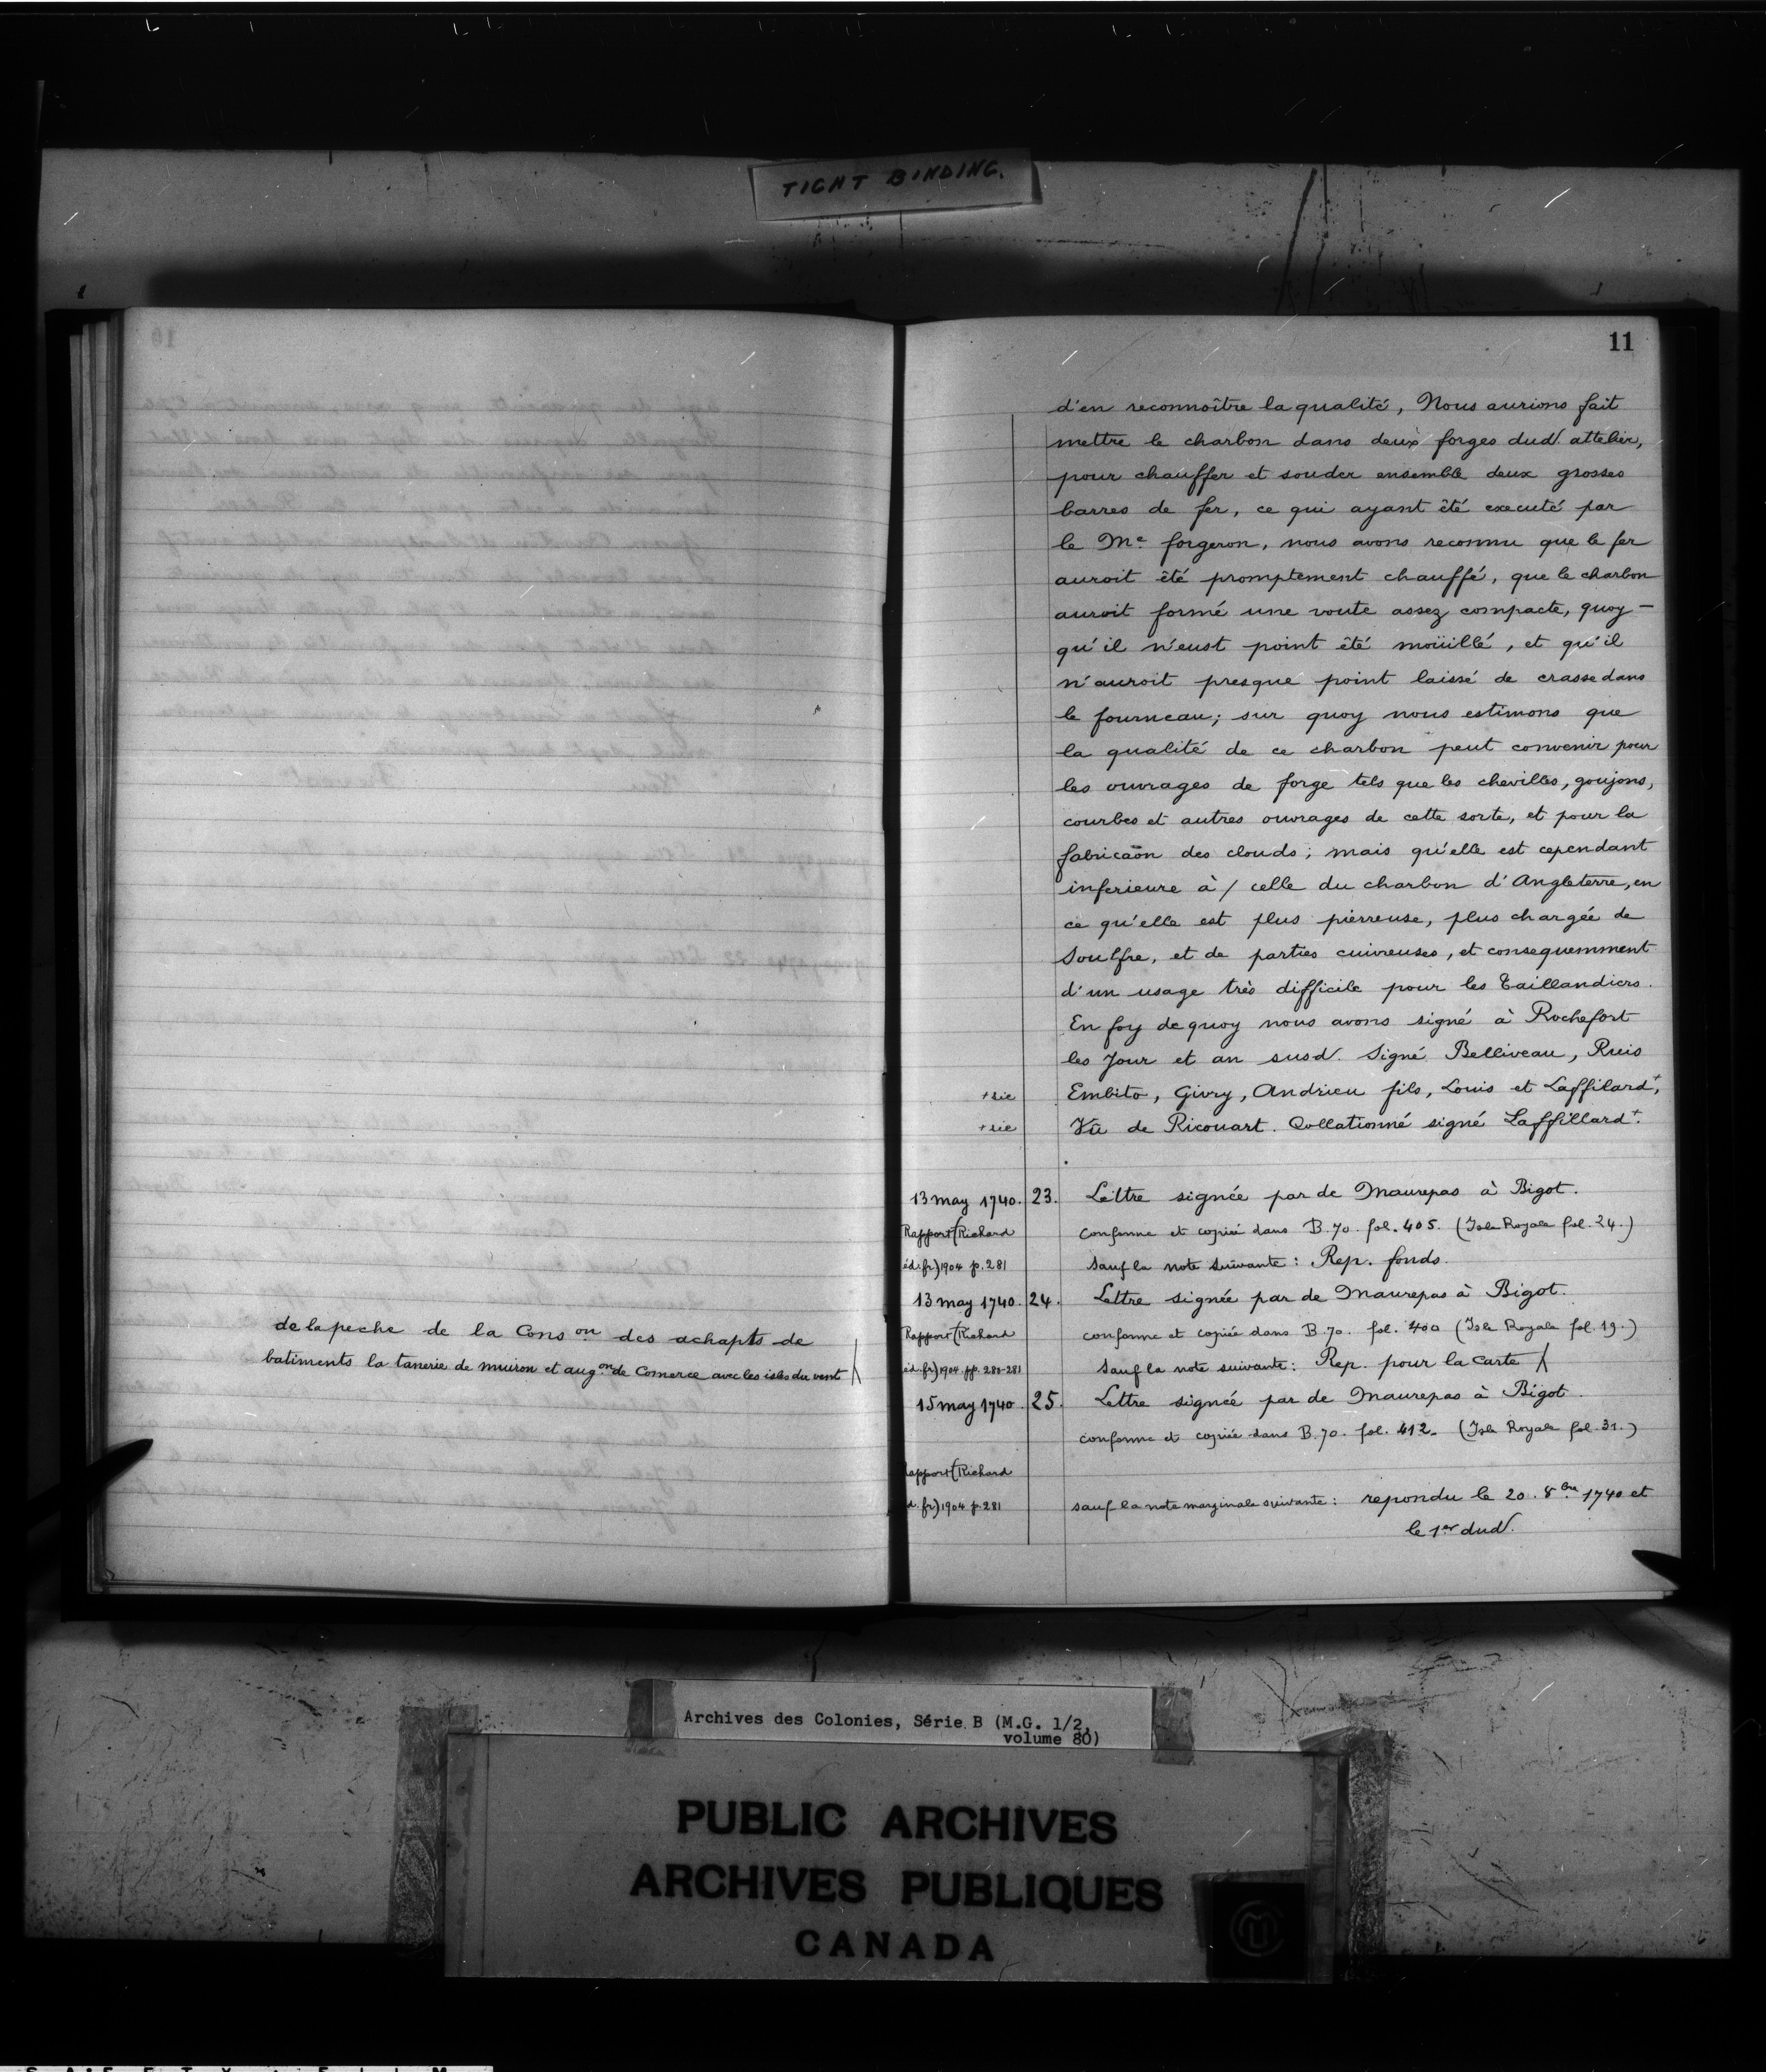 TIGHT BINDING.
11
d'en reconnoître la qualité, Nous aurions fait
mettre le charbon dans deux forges dud. attelier,
pour chauffer et souder ensemble deux grosses
barres de fer, ce qui ayant êté executé par
le Me forgeron, nous avons reconnu que le fer
auroit êté promptement chauffé, que le charbon
auroit formé une voute assez compacte, quoy-
qu'il n'eust point êté moüillé, et qu'il
n'auroit presque point laissé de crasse dans
le fourneau; sur quoy nous estimons que
la qualité de ce charbon peut convenir pour
les ouvrages de forge tels que les chevilles, goujons,
courbes et autres ouvrages de cette sorte, et pour la
fabricaõn des clouds; mais qu'elle est cependant
inferieure à / celle du charbon d'Angleterre, en
ce qu'elle est plus pierreuse, plus chargée de
Soulfre, et de parties cuivreuses, et consequemment
d'un usage très difficile pour les Taillandiers.
En foy de quoy nous avons signé à Rochefort
les Jour et an susd. Signé Belliveau, Ruis
+ sic Embito, Givry, Andrieu fils, Louis et Laffilard+,
+ sic Vû de Ricouart. Collationné signé Laffillard+.
13 may 1740. 23. Lettre signée par de Maurepas à Bigot.
Rapport (Richard conforme et copiée dans B. 70. fol. 405. (Isle Royale fol. 24.)
éd. fr.) 1904 p. 281 sauf la note suivante: Rep. fonds.
13 may 1740. 24. Lettre signée par de Maurepas à Bigot.
Rapport (Richard conforme et copiée dans B. 70. fol. 400 (Isle Royale fol. 19.)
éd. fr.) 1904. pp. 280-281 sauf la note suivante: Rep. pour la Carte
de la peche de la Cons on des achapts de
batiments la tanerie de muiron et aug.on de Comerce avec les isles du vent
15 may 1740. 25. Lettre signée par de Maurepas à Bigot.
conforme et copiée dans B. 70. fol. 412. (Isle Royale fol. 31.)
Rapport (Richard
éd. fr.) 1904 p. 281 sauf la note marginale suivante: repondu le 20. 8bre 1740 et
le 1er dud.
Archives des Colonies, Série B (M.G. 1/2,
volume 80)
PUBLIC ARCHIVES
ARCHIVES PUBLIQUES
CANADA